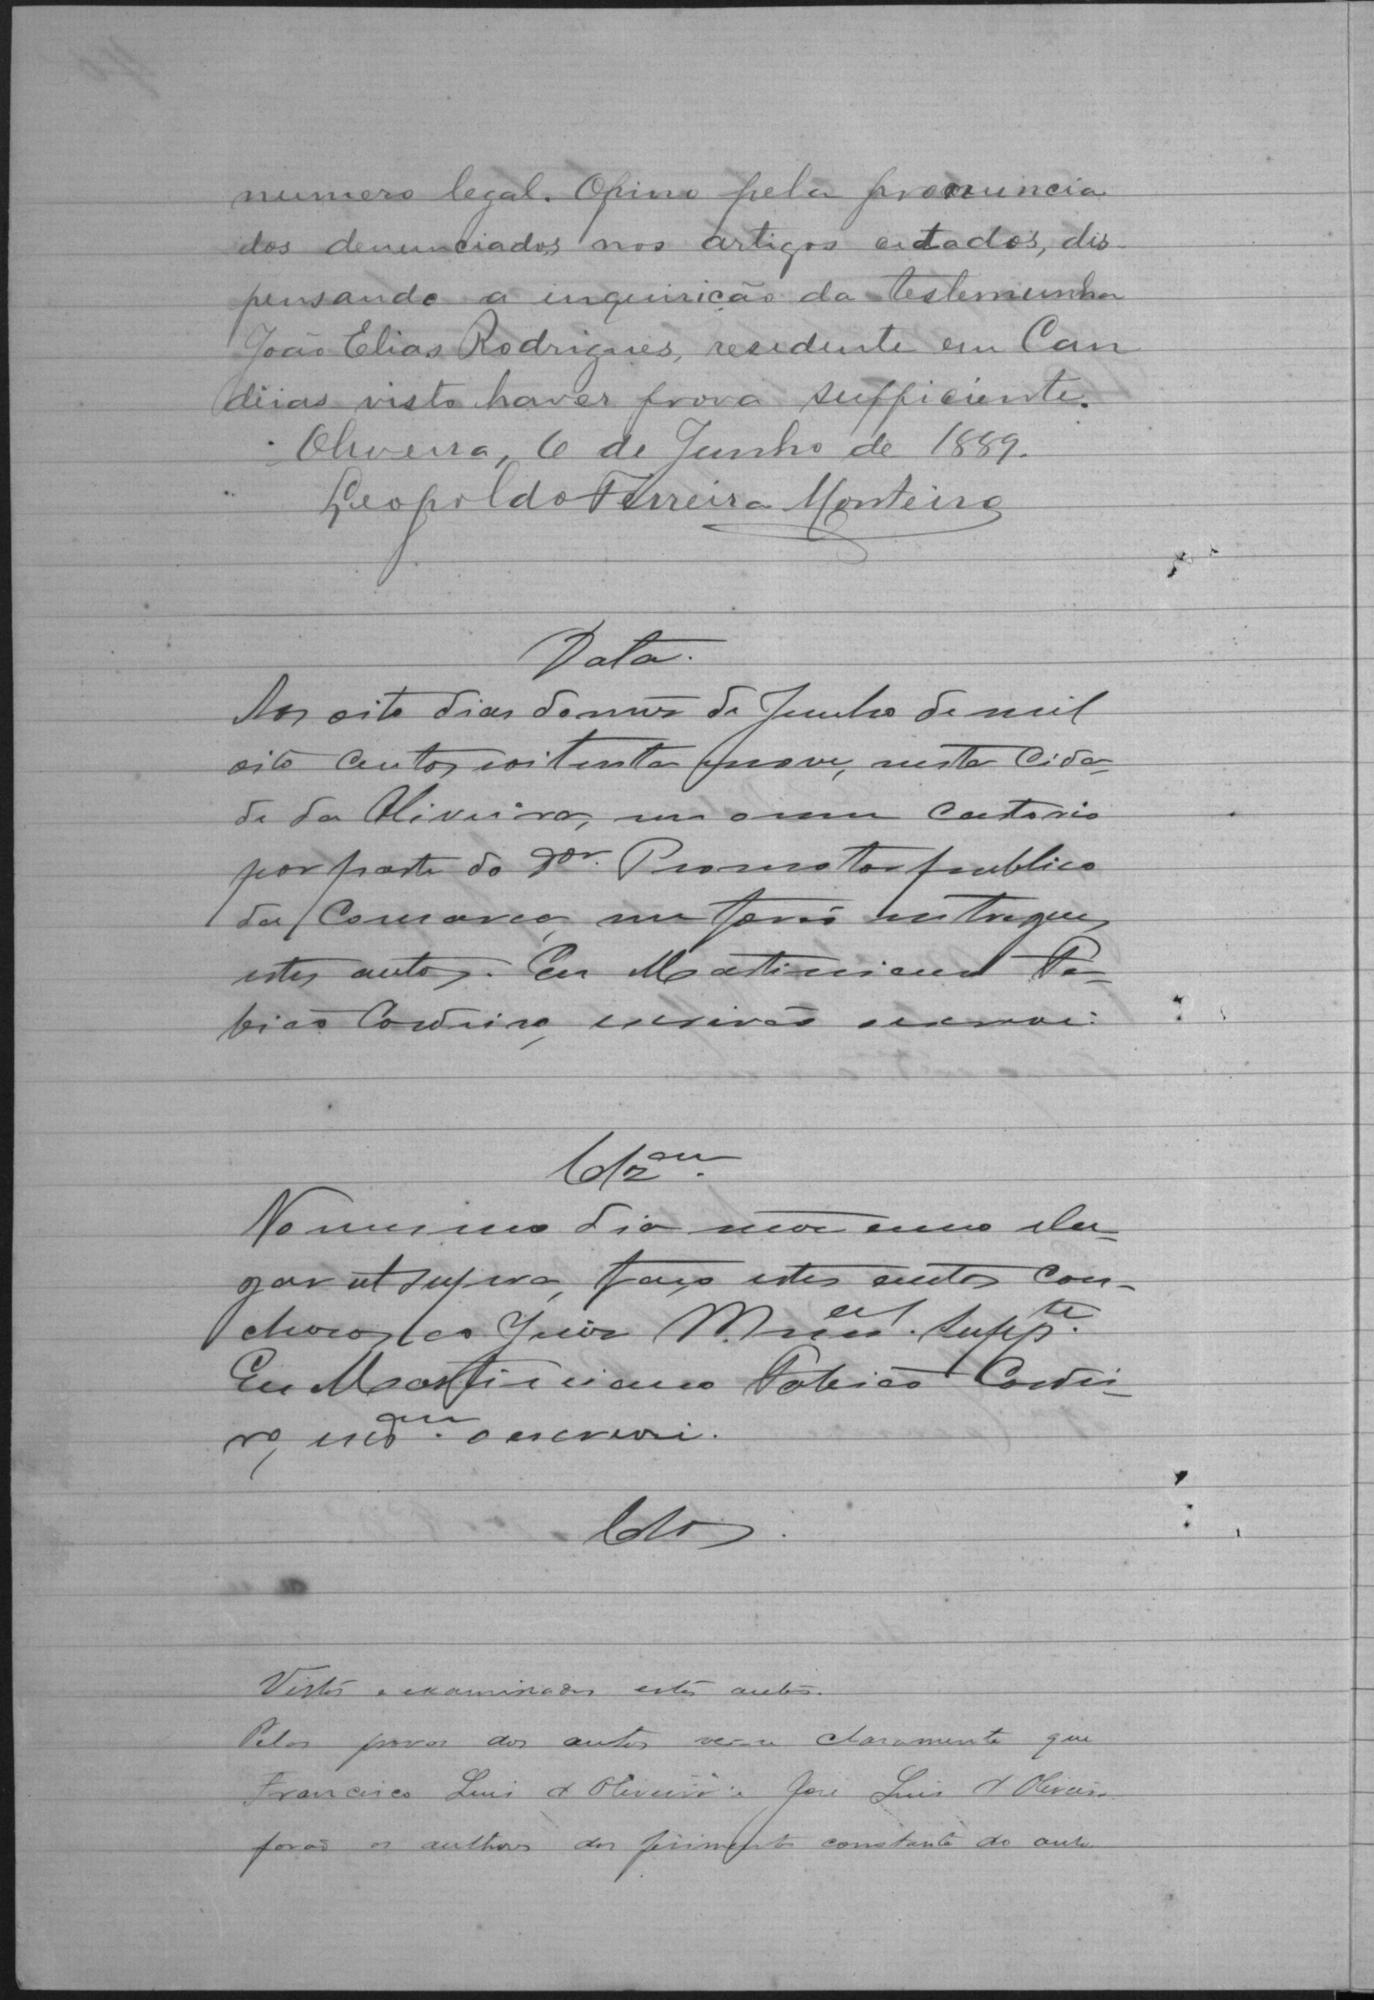 numero legal. Opino pela pronuncia
dos denunciados nos artigos citados, dis-
pensando a inquirição da testemunha
João Elias Rodrigues, residente em Can
deias visto haver prova sufficiente.
Oliveira, 6 de Junho de 1889.
Leopoldo Ferreira Monteiro
Data.
Aos oito dias do mez de Junho de mil
oito centos e oitenta e nove, nesta Cida-
de da Oliveira, em o meu cartorio
por parte do Dor. Promotor publico
da Comarca, me forão entregues
estes autos. Eu Martiniano To-
bias Cordeiro, escrivão o escrevi.
Clzam.
No mesmo dia mez anno e lu-
gar ut supra, faço estes autos con-
clusos ao Juiz Munal. Suppte.
Eu Martiniano Tobias Cordei-
ro, escam. o escrevi.
Clos.
Vistos e examinados estes autos.
Pelas provas dos autos ve-se claramente que
Francisco Luis d'Oliveira e José Luis d'Oliveira
forão os authores dos ferimentos constante do auto